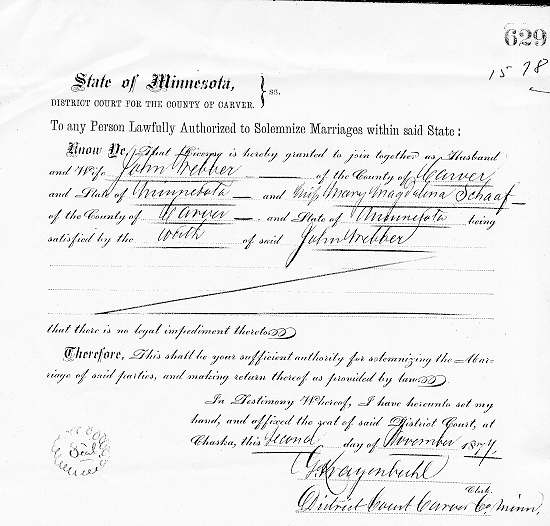 629
15 78
State of Minnesota, } ss.
DISTRICT COURT FOR THE COUNTY OF CARVER.
To any Person Lawfully Authorized to Solemnize Marriages within said State:
Know Ye, That License is hereby granted to join together as Husband
and Wife John Webber of the County of Carver
and State of Minnesota and Miss Mary Magdalina Schaaf
of the County of Carver and State of Minnesota being
satisfied by the oath of said John Webber
that there is no legal impediment thereto.
Therefore, This shall be your sufficient authority for solemnizing the Mar-
riage of said parties, and making return thereof as provided by law.
In Testimony Whereof, I have hereunto set my
hand, and affixed the seal of said District Court, at
Chaska, this Second day of November 1877.
G Krayenbuhl
Clerk.
District Court Carver Co, Minn.
Seal